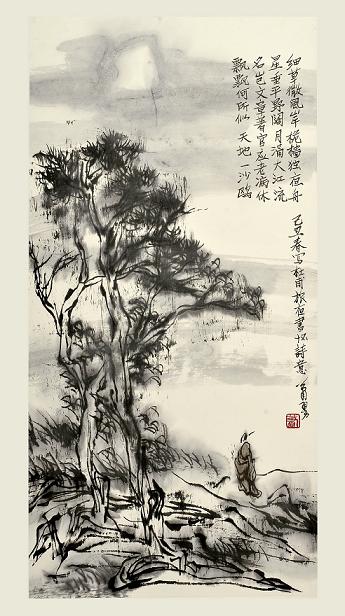 细草微風岸桅樯独夜舟
星垂平野阔月涌大江流
名岂文章著官应老病休
飘飘何所似 天地一沙鸥
己丑春写杜甫旅夜書怀詩意